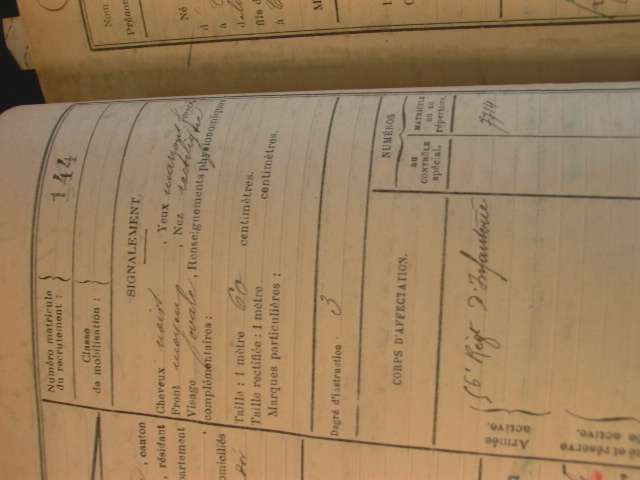 Nom
Prénom
Né
Numéro matricule
du recrutement :
144
Classe
de mobilisation :
SIGNALEMENT.
Cheveux noirs , Yeux marrons foncé
Front moyen , Nez rectiligne
Visage ovale , Renseignements physionomiques
complémentaires :
Taille : 1 mètre 60 centimètres.
Taille rectifiée : 1 mètre centimètres.
Marques particulières :
Degré d'instruction 3
CORPS D'AFFECTATION.
NUMÉROS
AU
CONTRÔLE
spécial.
MATRICULE
OU AU
répertoire.
Armée
active.
56e Régt d'Infanterie
7714
et réserve
active.
, canton
, résidant